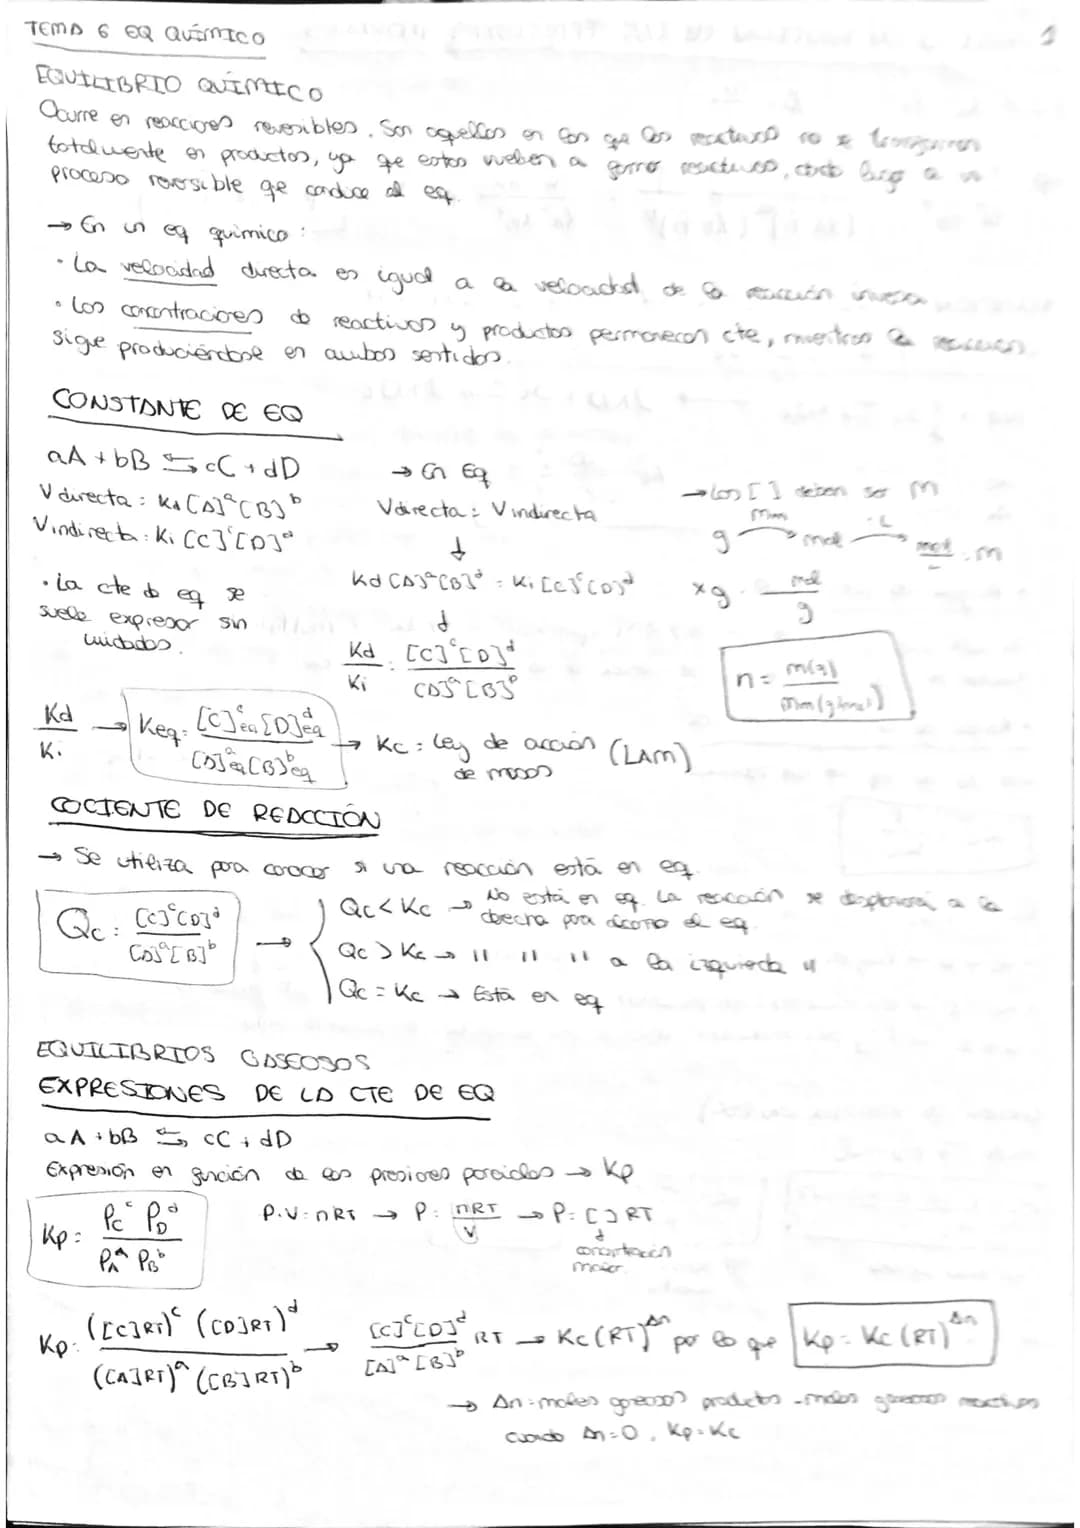 TEMA 6 EQ QUÍMICO
1
EQUILIBRIO QUÍMICO
Ocurre en reacciones reversibles. Son aquellas en las que los reactivos no se transforman
totalmente en productos, ya qe estos vuelven a formar reactivos, dando lugar a un
proceso reversible qe conduce al eq.
→ En un eq químico:
· La velocidad directa es igual a la velocidad de la reacción inversa
· Los concentraciones de reactivos y productos permanecen cte, mientras la reacción
sigue produciéndose en ambos sentidos.
CONSTANTE DE EQ
aA + bB ⇆ cC + dD
V directa: Kd [A]^a [B]^b
V indirecta: Ki [C]^c [D]^d
· La cte de eq se
suele expresar sin
unidades.
→ En Eq
Vdirecta = Vindirecta
↓
Kd [A]^a [B]^b = Ki [C]^c [D]^d
↓
Kd/Ki = [C]^c [D]^d / [A]^a [B]^b
→ Los [ ] deben ser M
g → mol → mol/L . M
Mm : L
x g · mol/g
n = m(g) / Mm (g/mol)
Kd/Ki → Keq = [C]^c eq [D]^d eq / [A]^a eq [B]^b eq → Kc: Ley de acción (LAM)
de masas
COCIENTE DE REACCIÓN
→ Se utiliza para conocer si una reacción está en eq.
Qc = [C]^c [D]^d / [A]^a [B]^b →
Qc < Kc → No está en eq. La reacción se desplazará a la
derecha para alcanzar el eq.
Qc > Kc → " " " a la izquierda "
Qc = Kc → Está en eq
EQUILIBRIOS GASEOSOS
EXPRESIONES DE LA CTE DE EQ
aA + bB ⇆ cC + dD
Expresión en función de las presiones parciales → Kp
Kp = Pc^c PD^d / PA^a PB^b
P·V = nRT → P = nRT/V → P = [ ] RT
↓
concentración
molar.
Kp = ([C]RT)^c ([D]RT)^d / ([A]RT)^a ([B]RT)^b → [C]^c [D]^d / [A]^a [B]^b RT → Kc (RT)^Δn por lo que Kp = Kc (RT)^Δn
→ Δn = moles gaseosos productos - moles gaseosos reactivos
cuando Δn = 0, Kp = Kc